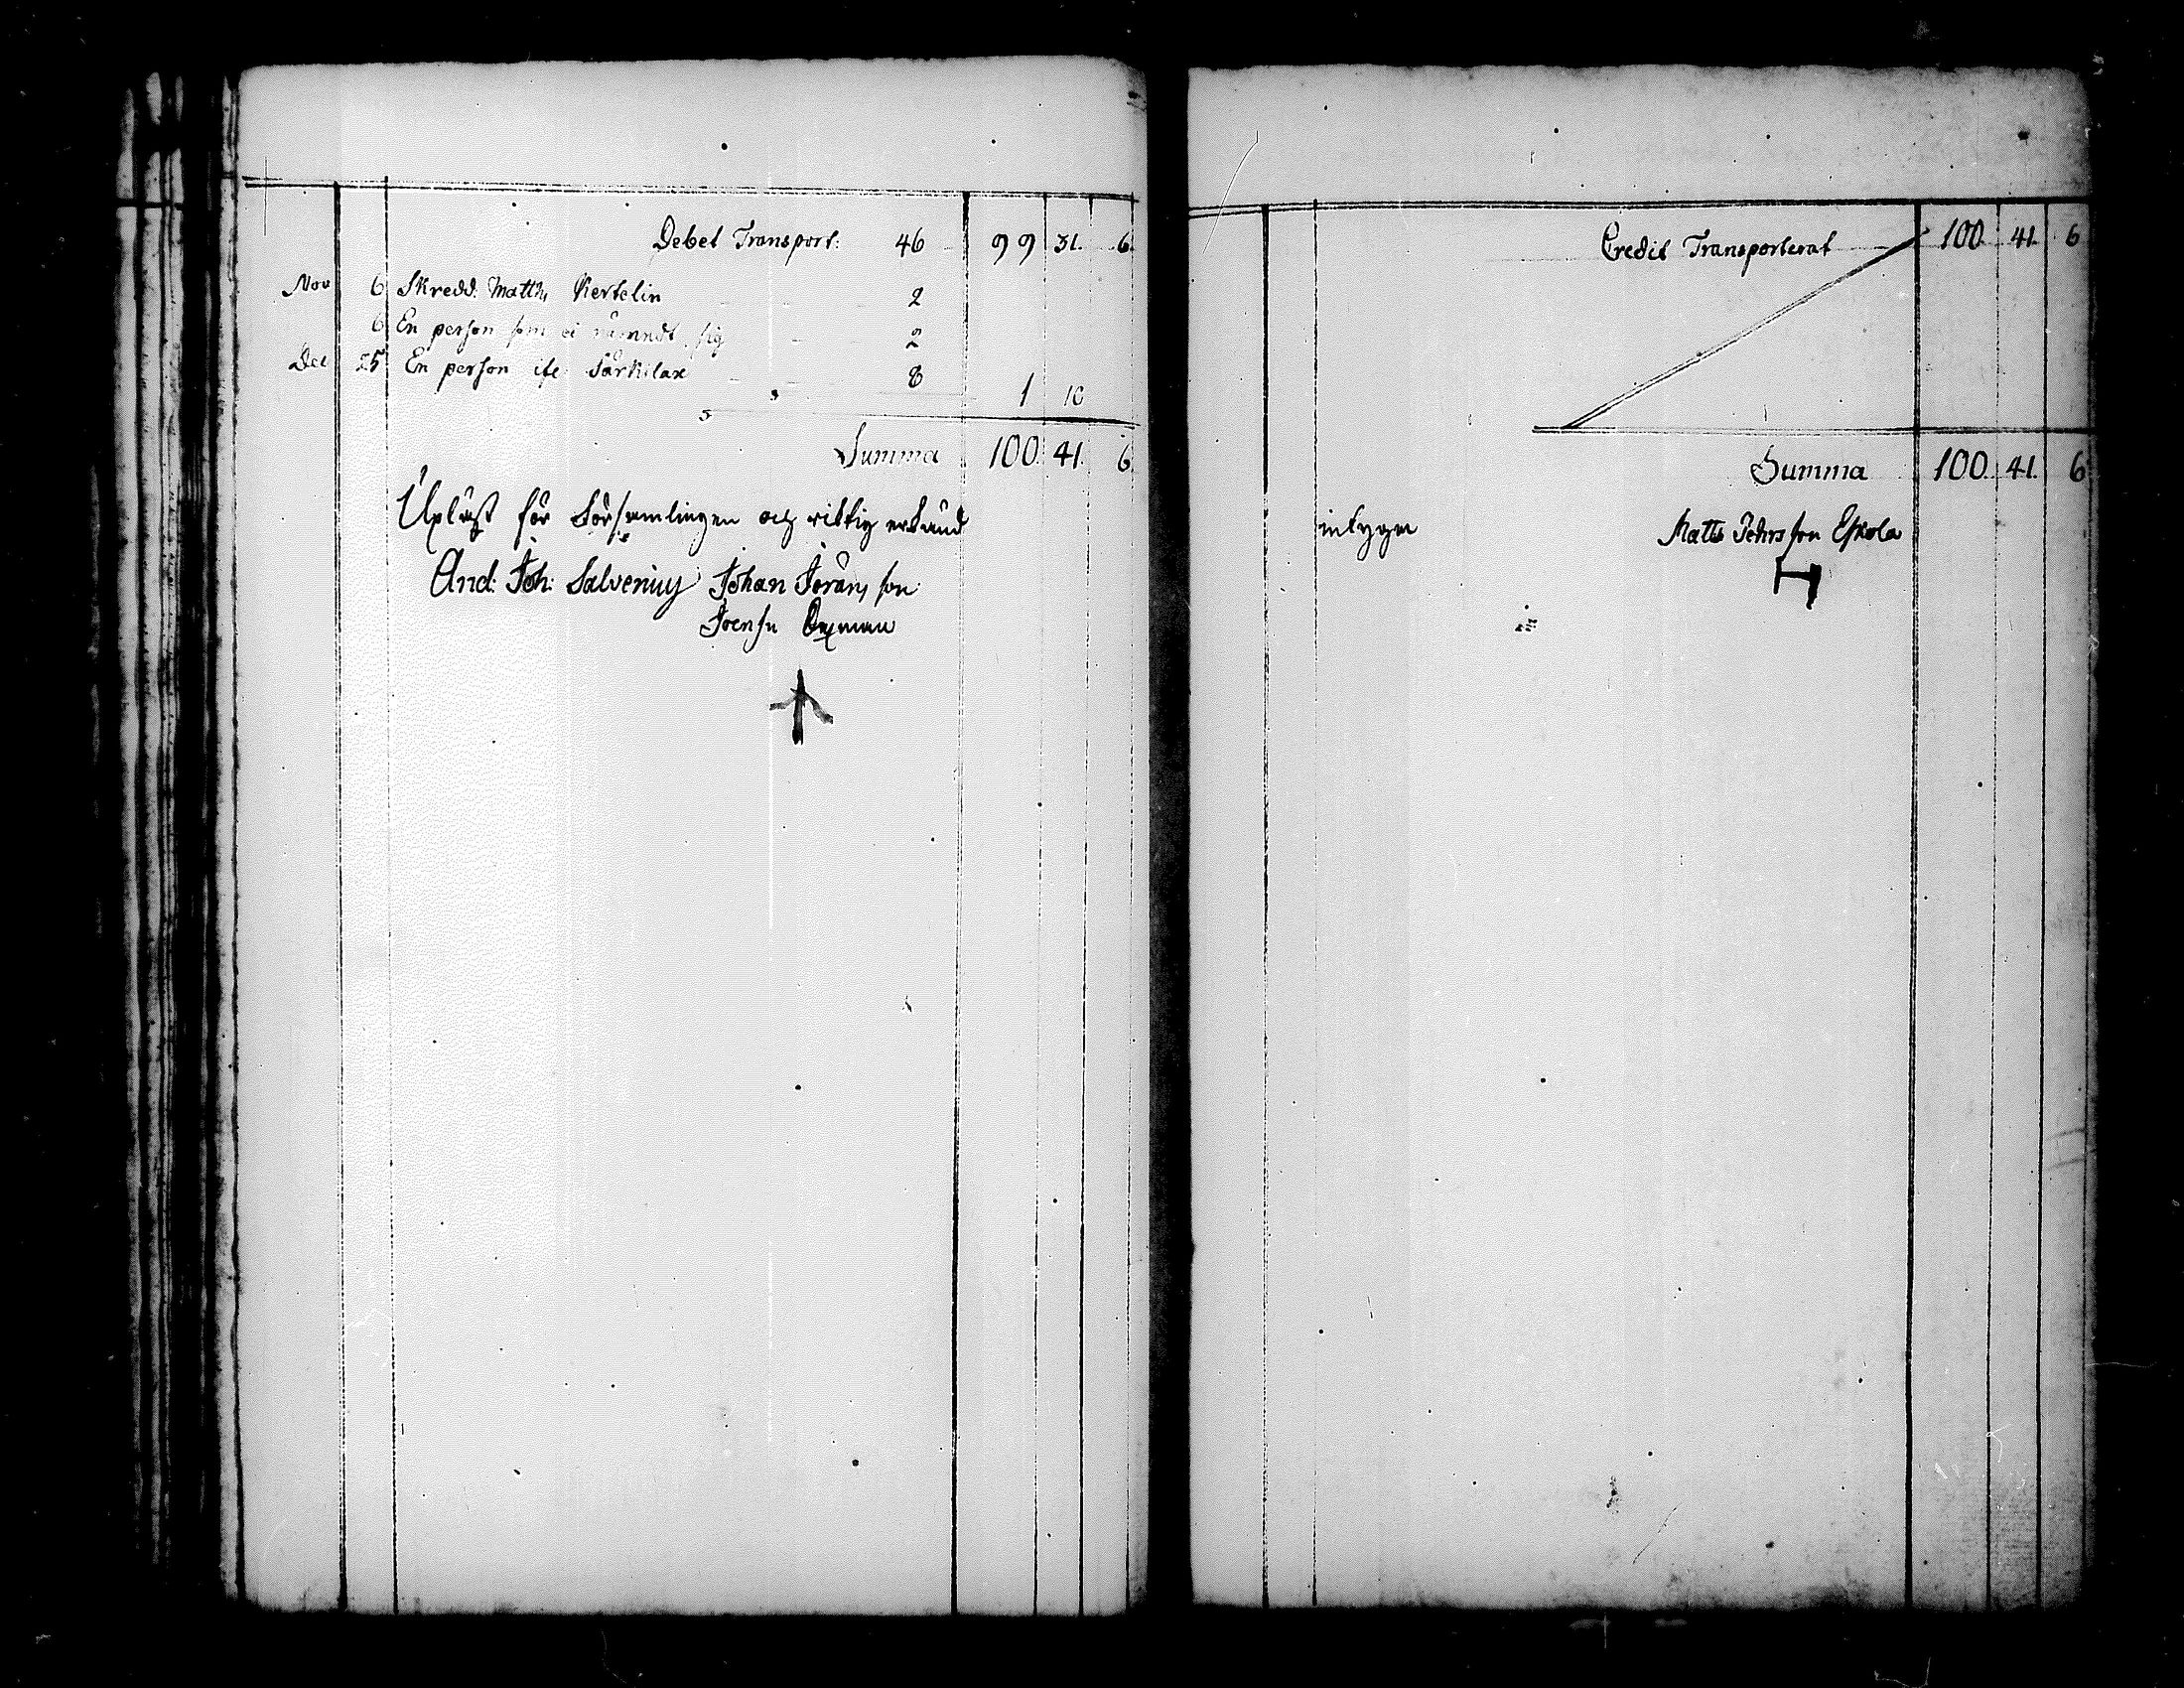 Debet Transport: 46 99 31. 6.
Nov 6 Skredd. Matths Kertelin 2
6 En person som ei nämndt sig 2
Dec 25 En person ifr. Särkilax 8
1 10
Summa 100. 41. 6.
Upläst för församlingen och riktig erkänd
And: Joh: Salvenius Johan Jörans son
Joensu
Credit Transporterat 100. 41. 6
Summa 100. 41. 6
intygar Matts Jehrs son Eskola